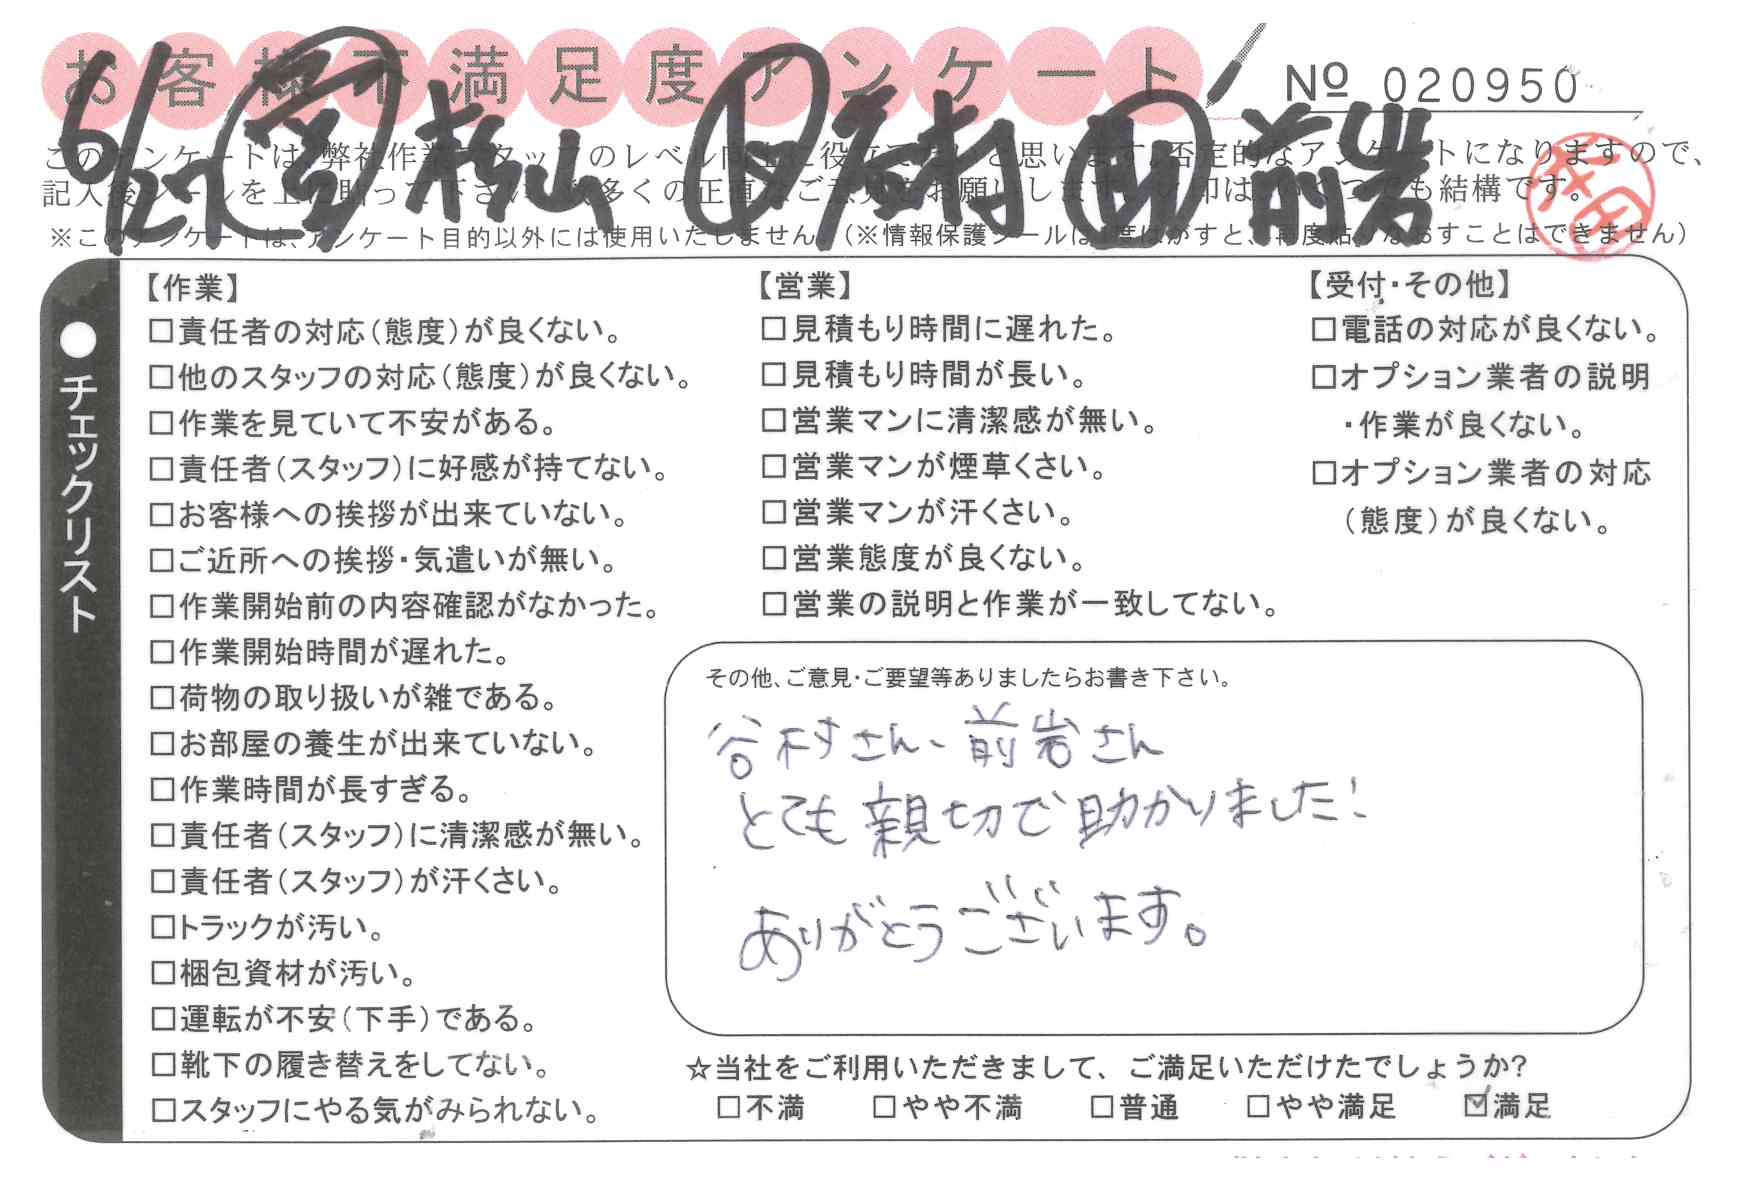 お客様不満足度アンケート
Nº 020950
6/27 営 松山 前岩
このアンケートは、弊社作業スタッフのレベル向上に役立てたいと思います。否定的なアンケートになりますので、
記入後シールを上に貼って下さい。数多くの正直なご意見をお願いします。
※このアンケートは、アンケート目的以外には使用いたしません。(※情報保護シールは1度はがすと、再度貼りなおすことはできません)
●チェックリスト
【作業】
□責任者の対応(態度)が良くない。
□他のスタッフの対応(態度)が良くない。
□作業を見ていて不安がある。
□責任者(スタッフ)に好感が持てない。
□お客様への挨拶が出来ていない。
□ご近所への挨拶・気遣いが無い。
□作業開始前の内容確認がなかった。
□作業開始時間が遅れた。
□荷物の取り扱いが雑である。
□お部屋の養生が出来ていない。
□作業時間が長すぎる。
□責任者(スタッフ)に清潔感が無い。
□責任者(スタッフ)が汗くさい。
□トラックが汚い。
□梱包資材が汚い。
□運転が不安(下手)である。
□靴下の履き替えをしてない。
□スタッフにやる気がみられない。
【営業】
□見積もり時間に遅れた。
□見積もり時間が長い。
□営業マンに清潔感が無い。
□営業マンが煙草くさい。
□営業マンが汗くさい。
□営業態度が良くない。
□営業の説明と作業が一致してない。
【受付・その他】
□電話の対応が良くない。
□オプション業者の説明
・作業が良くない。
□オプション業者の対応
(態度)が良くない。
その他、ご意見・ご要望等ありましたらお書き下さい。
谷村さん、前岩さん
とても親切で助かりました!
ありがとうございます。
☆当社をご利用いただきまして、ご満足いただけたでしょうか?
□不満 □やや不満 □普通 □やや満足 ☑満足